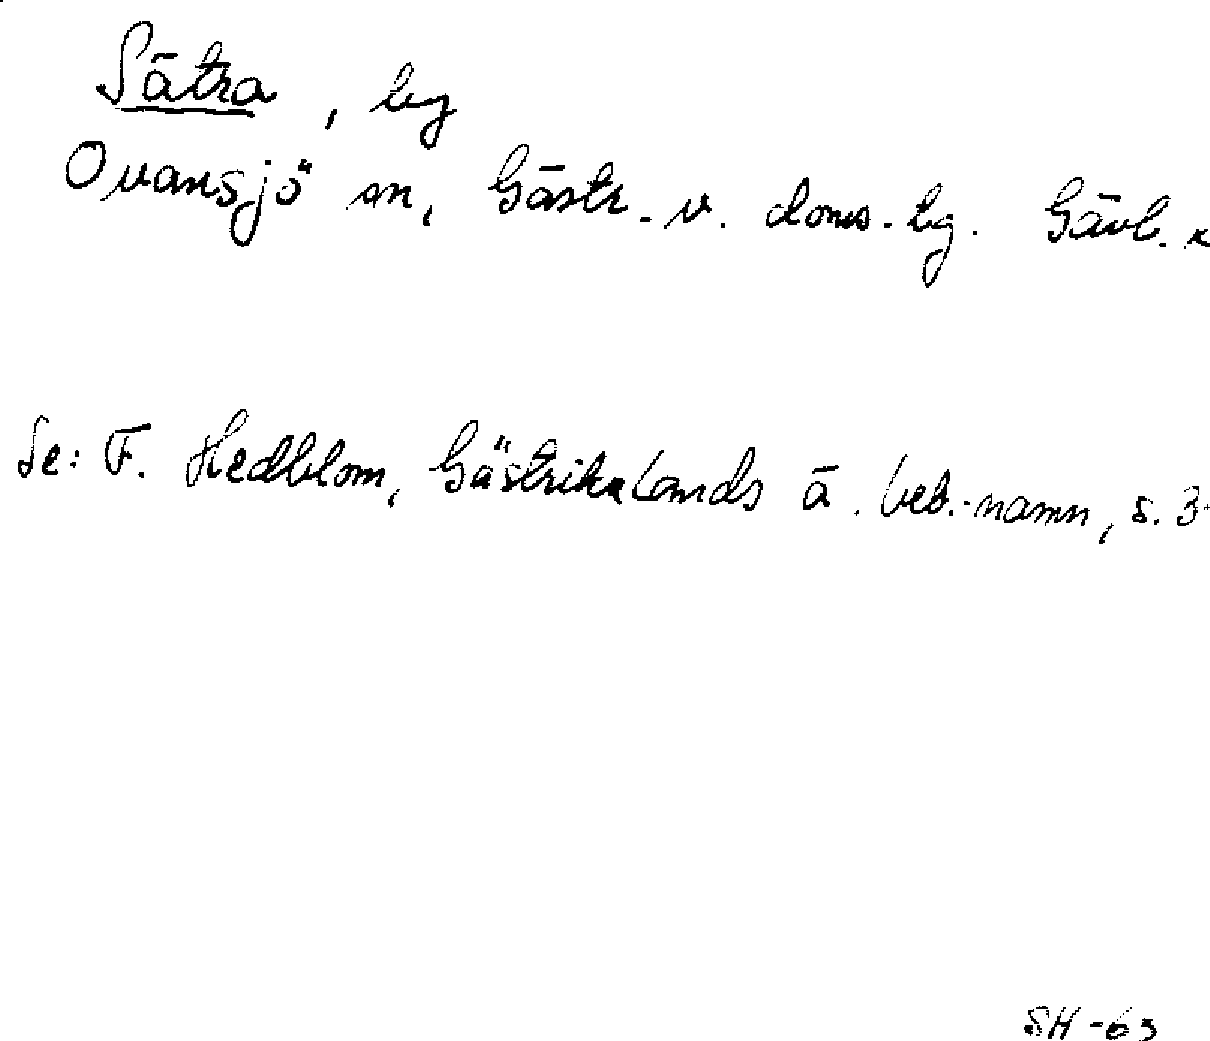 Sätra, by
Ovansjö sn, Gästr. v. doms.-lg. Gävl.
Se: F. Hedblom, Gästriklands ä. beb.-namn, s. 3
SH -63